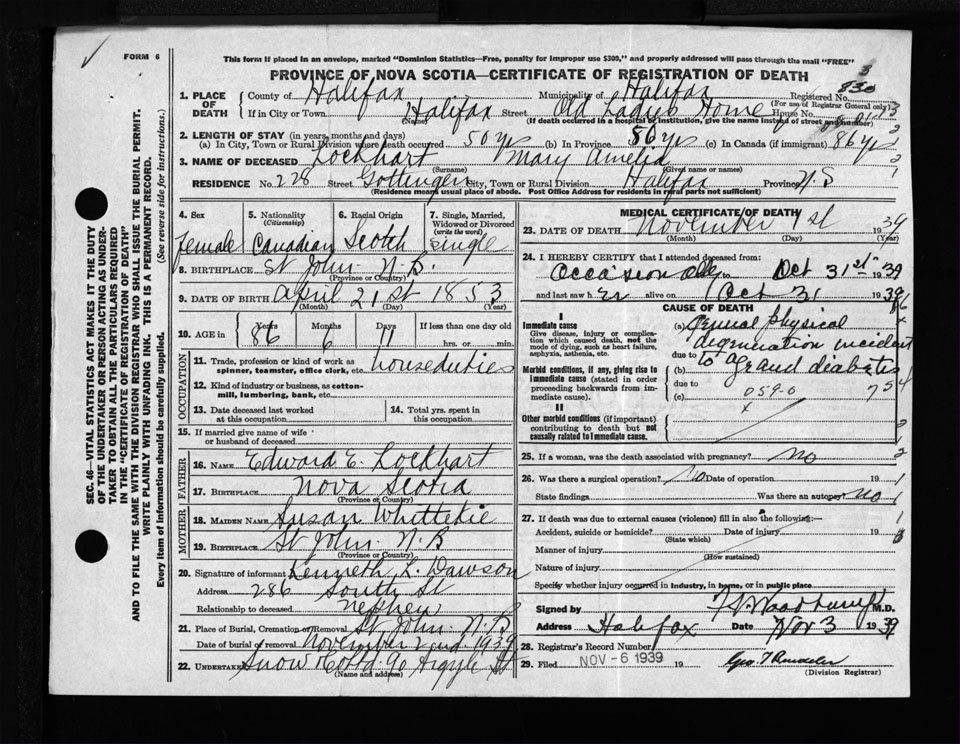 FORM 6
This form if placed in an envelope, marked "Dominion Statistics—Free, penalty for improper use $300," and properly addressed will pass through the mail "FREE"
PROVINCE OF NOVA SCOTIA—CERTIFICATE OF REGISTRATION OF DEATH
1. PLACE OF DEATH
County of Halifax Municipality of Halifax Registered No. 830
(For use of Registrar General only)
If in City or Town Halifax Street Old Ladys Home House No.
(Name) (If death occurred in a hospital or institution, give the name instead of street and number)
2. LENGTH OF STAY (in years, months and days)
(a) In City, Town or Rural Division where death occurred 50 yrs (b) In Province 50 yrs (c) In Canada (if immigrant) 86 yrs
3. NAME OF DECEASED Lockhart Mary Amelia
(Surname) (Given name or names)
RESIDENCE No. 228 Street Gottingen City, Town or Rural Division Halifax Province N.S
(Residence means usual place of abode. Post Office Address for residents in rural parts not sufficient)
4. Sex
female
5. Nationality (Citizenship)
Canadian
6. Racial Origin
Scotch
7. Single, Married, Widowed or Divorced (write the word)
single
8. BIRTHPLACE St John N.B.
(Province or Country)
9. DATE OF BIRTH April 21st 1853
(Month) (Day) (Year)
10. AGE in Years Months Days If less than one day old
86 6 11 hrs. or min.
OCCUPATION
11. Trade, profession or kind of work as spinner, teamster, office clerk, etc. houseduties
12. Kind of industry or business, as cotton-mill, lumbering, bank, etc.
13. Date deceased last worked at this occupation
14. Total yrs. spent in this occupation
15. If married give name of wife or husband of deceased
FATHER
16. NAME Edward E. Lockhart
17. BIRTHPLACE Nova Scotia
(Province or Country)
MOTHER
18. MAIDEN NAME Susan Whittekie
19. BIRTHPLACE St John N.B
(Province or Country)
20. Signature of informant Kenneth K. Dawson
Address 286 South St
Relationship to deceased nephew
21. Place of Burial, Cremation or Removal St John N.B
Date of burial or removal November 2nd 1939
22. Undertaker Snow & Co Ltd 90 Argyle St
(Name and address)
MEDICAL CERTIFICATE OF DEATH
23. DATE OF DEATH November 1st 1939
(Month) (Day) (Year)
24. I HEREBY CERTIFY that I attended deceased from:
Occasionally to Oct 31st 1939
and last saw her alive on Oct 31 1939
CAUSE OF DEATH
I
Immediate cause
Give disease, injury or complication which caused death, not the mode of dying, such as heart failure, asphyxia, asthenia, etc.
(a) General physical
degeneration incident
due to
to age and diabetes
Morbid conditions, if any, giving rise to immediate cause (stated in order proceeding backwards from immediate cause).
(b)
due to
(c) 059-0
II
Other morbid conditions (if important) contributing to death but not causally related to immediate cause.
25. If a woman, was the death associated with pregnancy? no
26. Was there a surgical operation? No Date of operation 19
State findings Was there an autopsy? no
27. If death was due to external causes (violence) fill in also the following:—
Accident, suicide or homicide? Date of injury 19
(State which)
Manner of injury
(How sustained)
Nature of injury
Specify whether injury occurred in industry, in home, or in public place
Signed by M.D.
Address Halifax Date Nov 3 1939
28. Registrar's Record Number
29. Filed NOV - 6 1939 19
(Division Registrar)
SEC. 46—VITAL STATISTICS ACT MAKES IT THE DUTY OF THE UNDERTAKER OR PERSON ACTING AS UNDERTAKER TO OBTAIN ALL THE PARTICULARS REQUIRED IN THE "CERTIFICATE OF REGISTRATION OF DEATH" AND TO FILE THE SAME WITH THE DIVISION REGISTRAR WHO SHALL ISSUE THE BURIAL PERMIT.
WRITE PLAINLY WITH UNFADING INK. THIS IS A PERMANENT RECORD.
Every item of information should be carefully supplied. (See reverse side for instructions.)